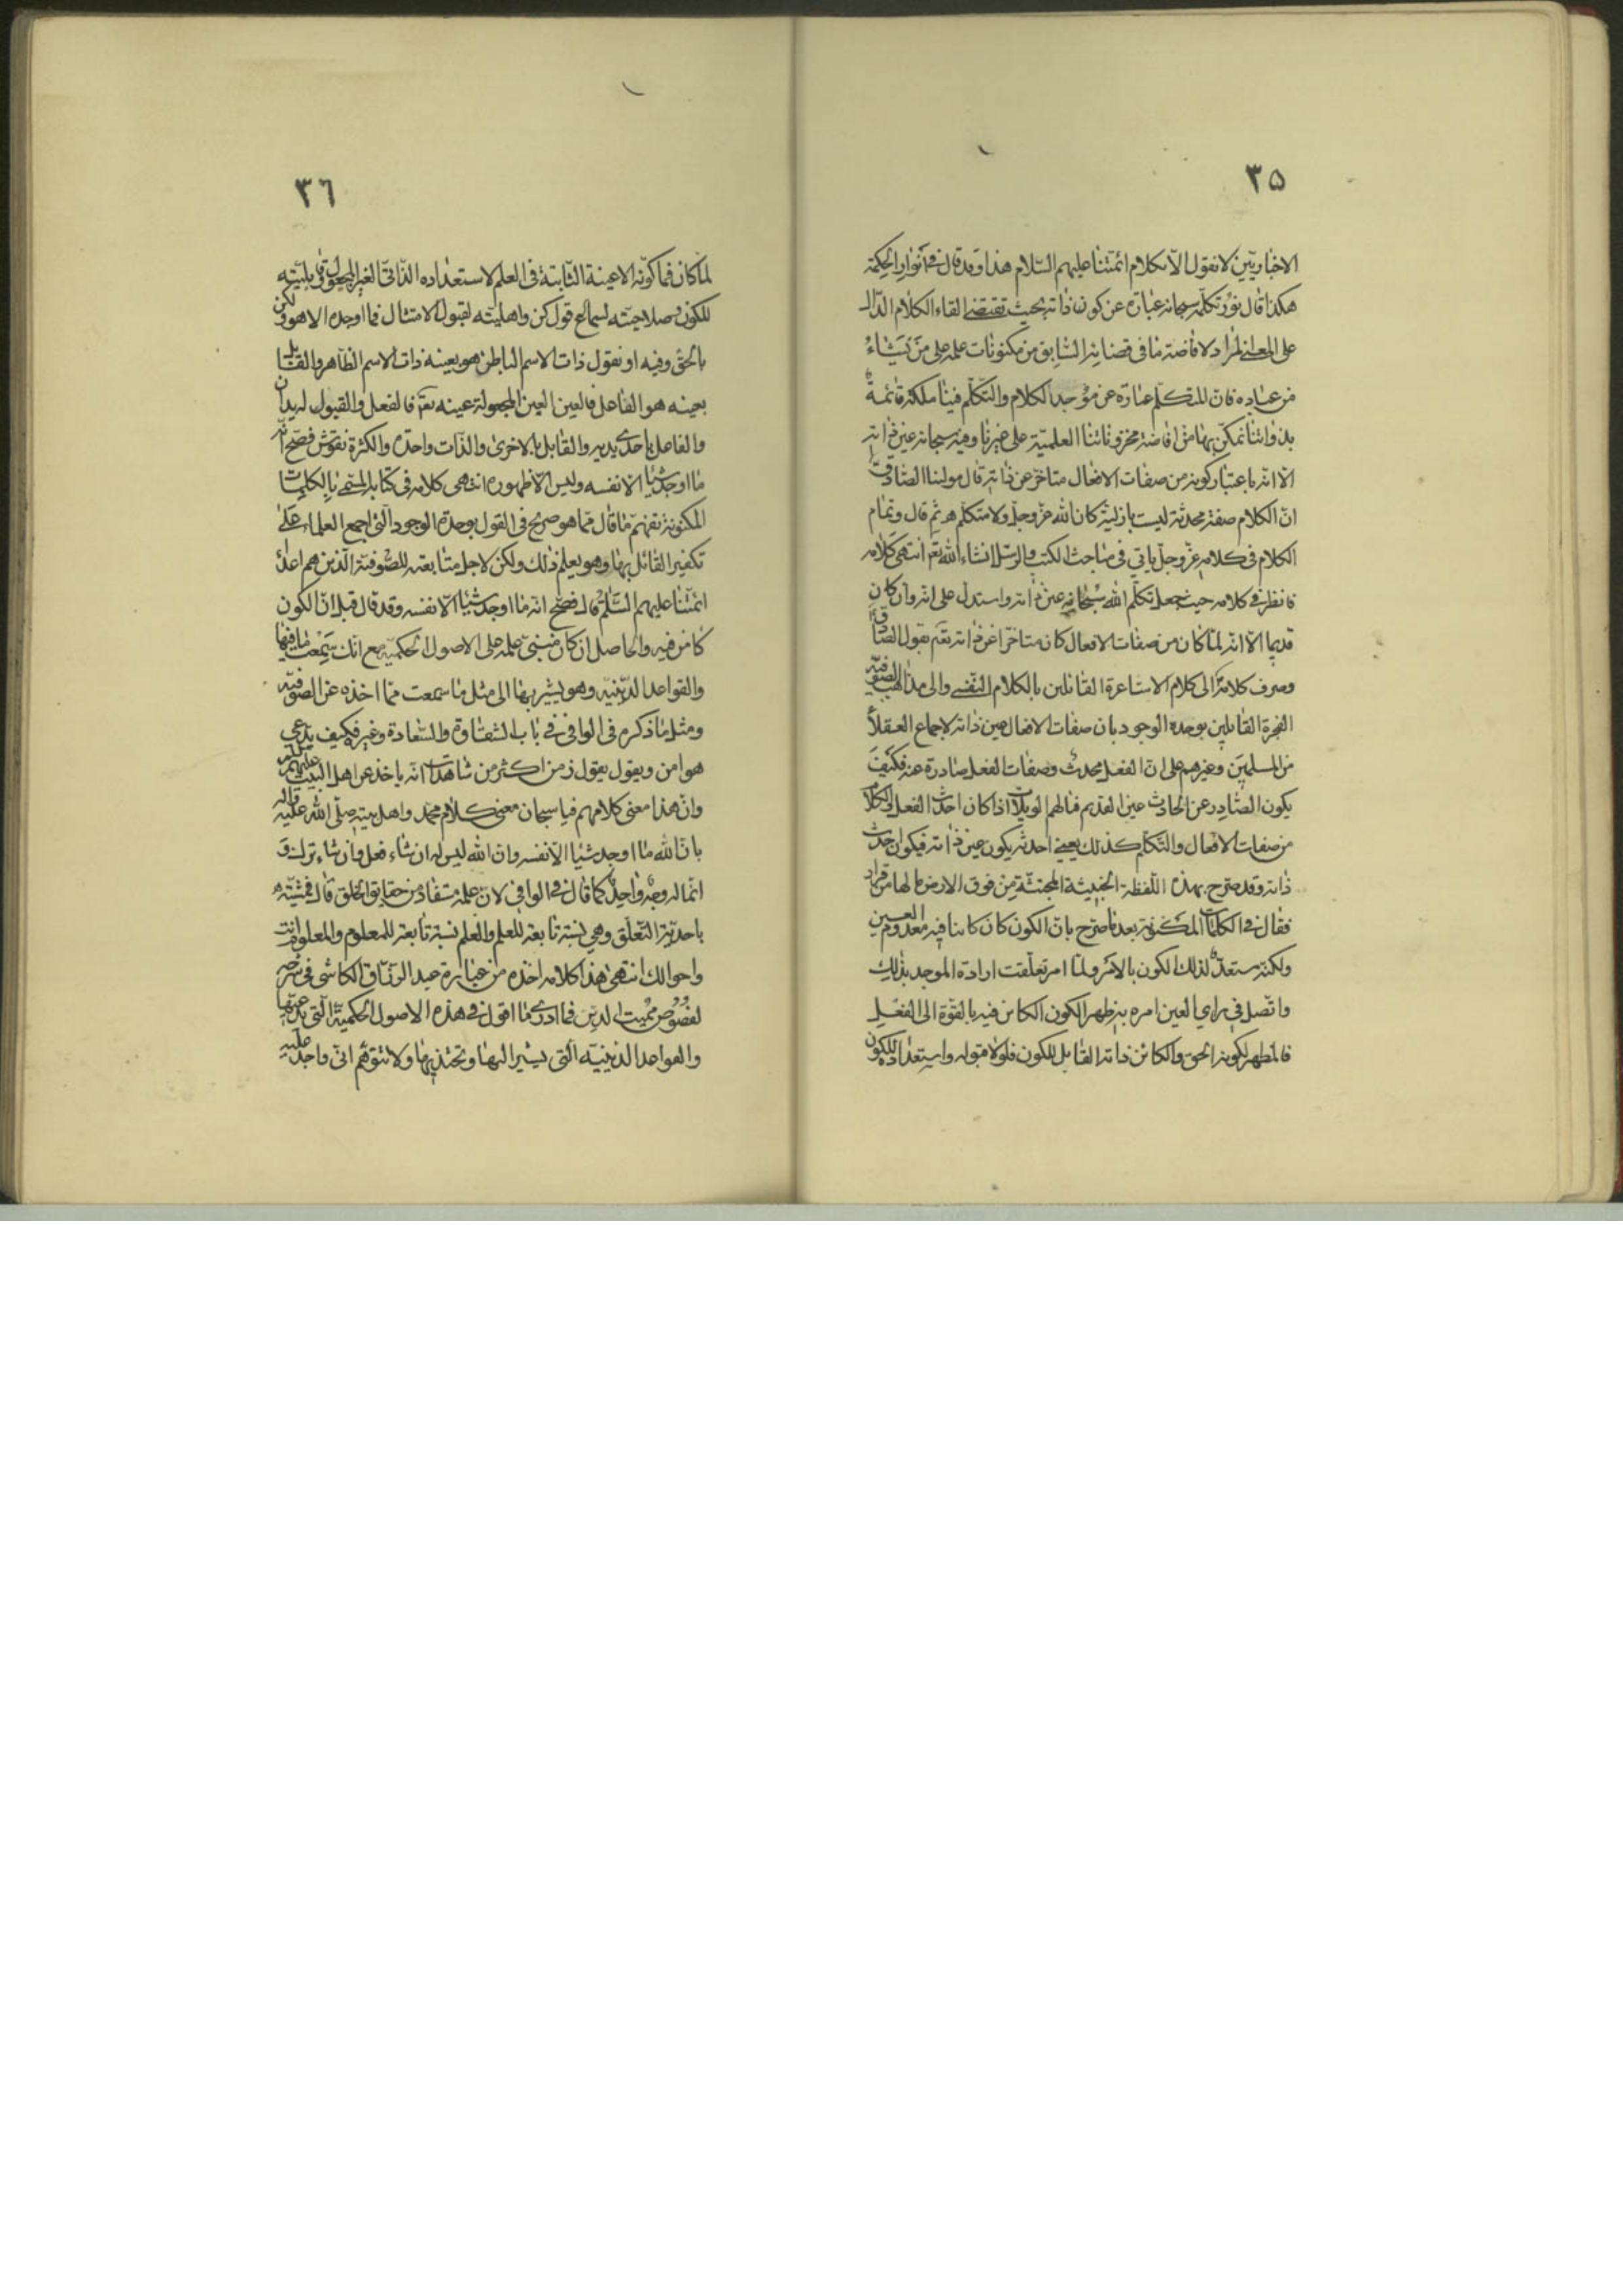 ٣٥
الاخباريّين لا نقول الّا بكلام ائمّتنا عليهم السّلام هذا وقد قال في انوار الحكمة
هكذا قال نور تكلّمه سبحانه عبارة عن كون ذاته بحيث تقتضي القاء الكلام الدّال
على المعنى المراد لافاضة ما في قضائه السّابق من مكنونات علمه على من يشاء
من عباده فانّ المتكلّم عبارة عن موجد الكلام والتكلّم فينا ملكة قائمة
بذواتنا نتمكّن بها من افاضة مخزوناتنا العلميّة على غيرنا وفيه سبحانه عين ذاته
الّا انّه باعتبار كونه من صفات الافعال متاخّر عن ذاته قال مولينا الصّادق ع
انّ الكلام صفة محدثة ليست بازليّة كان الله عزّ وجلّ ولا متكلّم ثم قال وتمام
الكلام في كلامه عزّ وجلّ ياتي في مباحث الكتب والرسل انشاء الله تعم انتهى كلامه
فانظر في كلامه حيث جعل تكلّم الله سبحانه عين ذاته واستدل على انه وان كان
قديما الّا انه لمّا كان من صفات الافعال كان متاخّرا عن ذاته تعم بقول الصّادق
وصرف كلامه الى كلام الاشاعرة القائلين بالكلام النّفسي والى مذاهب الصّوفيّة
الفجرة القائلين بوحدة الوجود بان صفات الافعال عين ذاته لاجماع العقلاء
من المسلمين وغيرهم على انّ الفعل محدث وصفات الفعل صادرة عنه فكيف
يكون الصّادر عن الحادث عين القديم فيالهم الويل اذا كان احدث الفعل والكلام
من صفات الافعال والتّكلّم كذلك يعني احدثه يكون عين ذاته فيكون احدث
ذاته وقد صرّح بهذه اللّفظة الخبيثة المجتثّة من فوق الارض ما لها من قرار
فقال في الكلمات المكنونة بعد ما صرّح بانّ الكون كان كامنا فيه معدوم العين
ولكنّه مستعدّ لذلك الكون بالامر ولمّا امر تعلّقت ارادة الموجد بذلك
واتّصل في راي العين امره به ظهر الكون الكامن فيه بالقوّة الى الفعل
فالمظهر لكونه الحق والكائن ذاته القابل للكون فلولا قبوله واستعداده للكون
٣٦
لما كان فما كوّنه الا عينه الثّابتة في العلم لاستعداده الذّاتيّ الغير المجعول وقابليّته
للكون وصلاحيّته لسماع قول كن واهليّته لقبول الامتثال فما اوجده الا هو ولكن
بالحق وفيه او نقول ذات الاسم الباطن هو بعينه ذات الاسم الظّاهر والقابل
بعينه هو الفاعل فالعين الغير المجعولة عينه تعم فالفعل والقبول له يدان
والفاعل باحدى يديه والقابل بالاخرى والذّات واحدة والكثرة نقوش فصحّ انّه
ما اوجد شيئا الّا نفسه وليس الّا ظهوره انتهى كلامه في كتابه المسمّى بالكلمات
المكنونة تفهّم ما قال فما هو صريح في القول بوحدة الوجود الّتي اجمع العلماء على
تكفير القائل بها وهو يعلم ذلك ولكن لاجل متابعته للصّوفيّة الذين هم اعداء
ائمّتنا عليهم السّلم قال فصحّ انه ما اوجد شيئا الّا نفسه وقد قال قبل انّ الكون
كامن فيه والحاصل ان كان مبنيّ علمه على الاصول الحكميّه مع انّك سمعت ما فيها
والقواعد الدّينيّه وهو يشير بها الى مثل ما سمعت ممّا اخذه عن الصّوفيّه
ومثل ما ذكره في الوافي في باب الشّقاوة والسّعادة وغيره فكيف يدعي
هوا من ويقول بقول زمن اكثر من شاهدت انه ياخذ عن اهل البيت عليهم السلام
وانّ هذا معنى كلامهم فيا سبحان معنى كلام محمد واهل بيته صلّى الله عليه واله
بانّ الله ما اوجد شيئا الّا نفسه وان الله ليس له ان شاء فعل وان شاء ترك و
انّما له وجه واحد كما قال في الوافي لان علمه مستفاد من حقايق الخلق قال فمشيّته
باحديّة التّعلّق وهي نسبة تابعة للعلم والعلم نسبة تابعة للمعلوم والمعلوم انت
واحوالك انتهى هذا كلامه اخذه من عبارة عبد الرزّاق الكاشي في شرحه
لفصوص مميت الدين فما ادري ما اقول في هذه الاصول الحكميّة الّتي يدعيها
والقواعد الدّينيّه الّتي يشير اليها ويحتذي بها ولا تتوهّم انّي واجد عليه